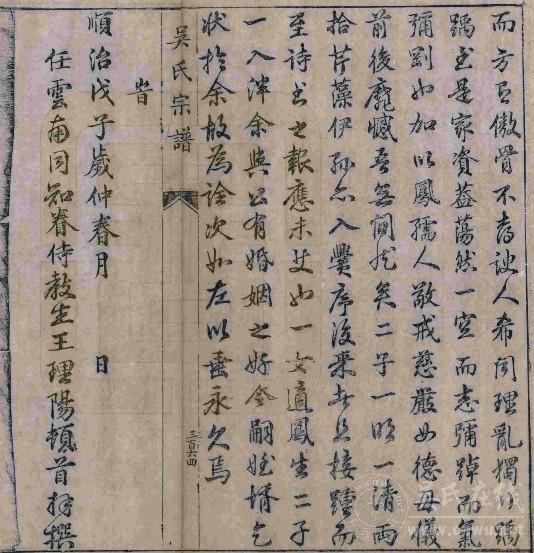 而方正傲骨不為諛人希聞理亂獨行踽
踽至是家資蓋蕩然一空而志彌踔而氣
彌劭如加以鳳孺人敬戒慈嚴如德母儀
前後龐憾吾無間然矣二子一明一清兩
拾芹藻伊孫亦入黌序後來者且接踵而
至詩書之報應未艾如一女適鳳生二子
一入泮余與公有婚姻之好令嗣姪壻乞
狀於余故為詮次如左以垂永久焉
吳氏宗譜
三百六四
旹
順治戊子歲仲春月 日
任雲南同知眷侍教生王理陽頓首拜撰
吴氏在线